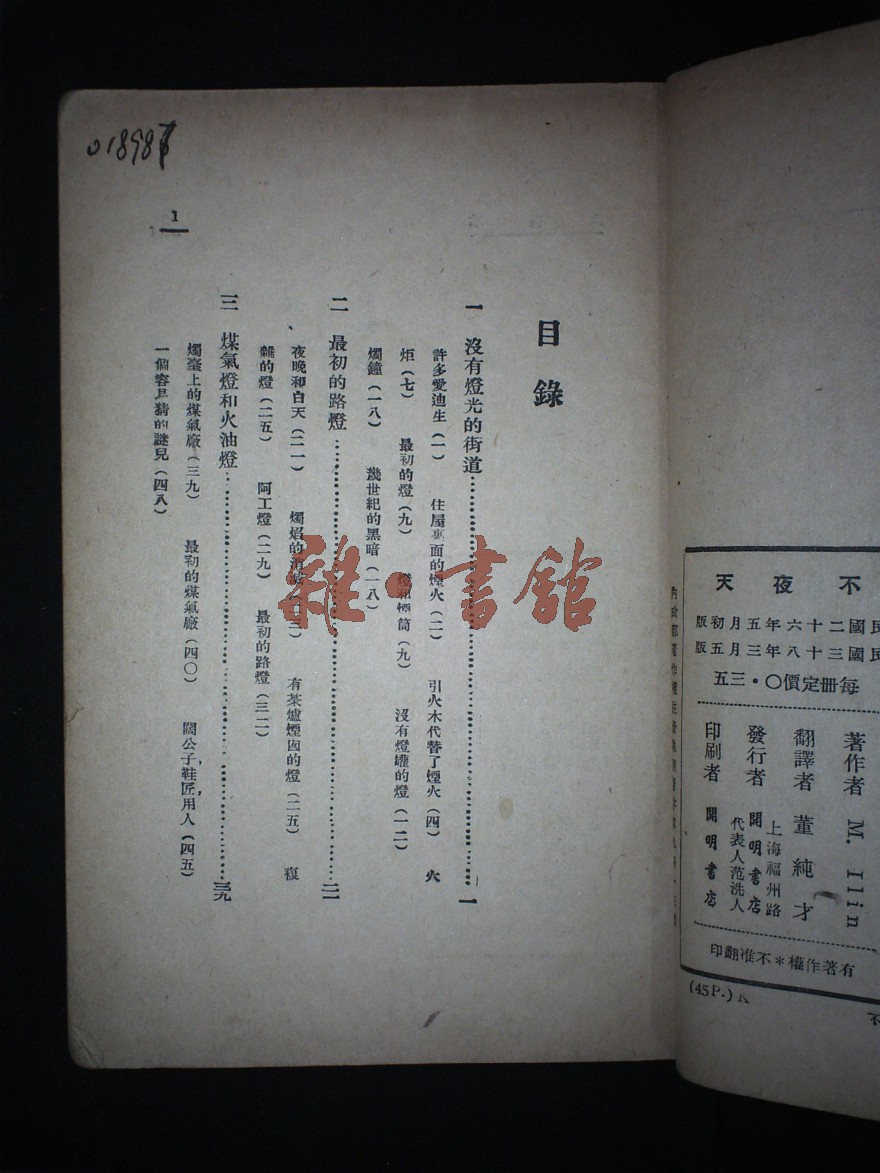 01898
1
目錄
一 沒有燈光的街道……一
許多愛迪生(一) 住屋裏面的煙火(二) 引火木代替了煙火(四) 火
炬(七) 最初的燈(九) 燈和煙筒(九) 沒有燈罐的燈(一二)
燭鐘(一八) 幾世紀的黑暗(一八)
二 最初的路燈……二一
夜晚和白天(二一) 燭焰的消滅(二三) 有茶爐煙囪的燈(二五) 複
雜的燈(二五) 阿工燈(二九) 最初的路燈(三二)
三 煤氣燈和火油燈……三九
燭臺上的煤氣廠(三九) 最初的煤氣廠(四〇) 闊公子,鞋匠,用人(四五)
一個容易猜的謎兒(四八)
雜·書館
不夜天
民國二十六年五月初版
民國三十八年三月五版
每冊定價〇·三五
著作者 M. Ilin
翻譯者 董純才
發行者 開明書店
上海福州路
代表人范洗人
印刷者 開明書店
有著作權*不准翻印
(45P.) K
不